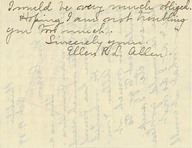 I would be very much obliged.
Hoping I am not troubling
you too much.
Sincerely yours
Ellen R. L. Allen